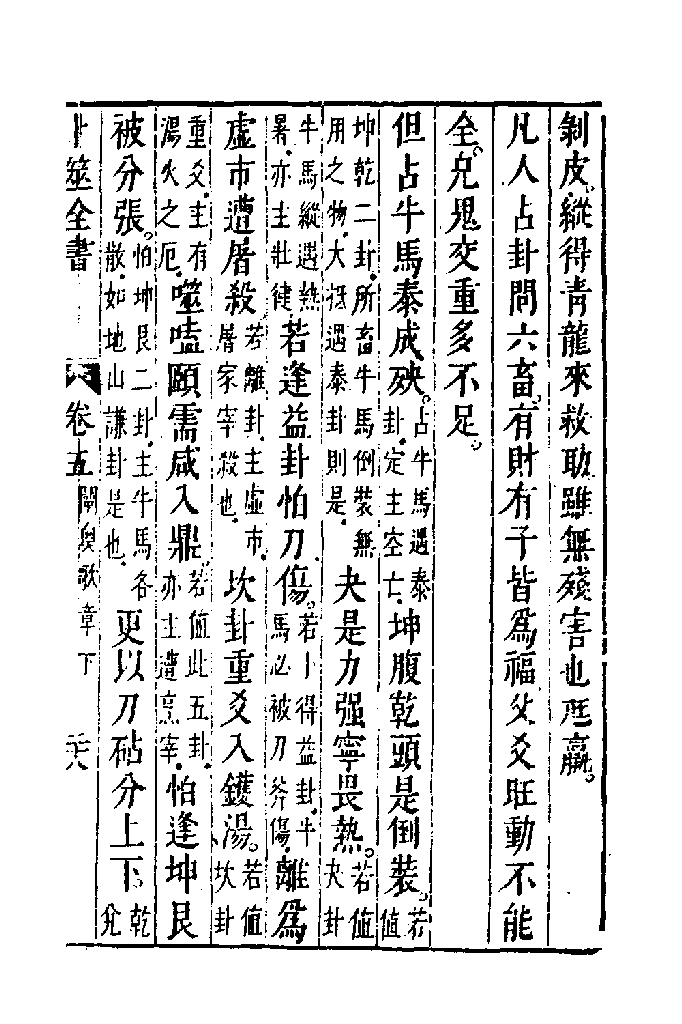 剝皮縱得青龍來救助雖無殘害也尫羸
凡人占卦問六畜有財有子皆爲福父爻旺動不能
全兄鬼交重多不足
但占牛馬泰成殃占牛馬遇泰卦定主空亡坤腹乾頭是倒裝若值
坤乾二卦所畜牛馬倒裝無用之物大抵遇泰卦則是夬是力强寧畏熱若值夬卦
牛馬縱遇熱暑亦主壯健若逢益卦怕刀傷若卜得益卦牛馬必被刀斧傷離爲
虛市遭屠殺若離卦主虛市屠家宰殺也坎卦重爻入鑊湯若值坎卦
重爻主有湯火之厄噬嗑頤需咸入鼎若值此五卦亦主遭烹宰怕逢坤艮
被分張怕坤艮二卦主牛馬各散如地山謙卦是也更以刀砧分上下乾兌
卜筮全書 卷五 闡奧歌章下 二十八